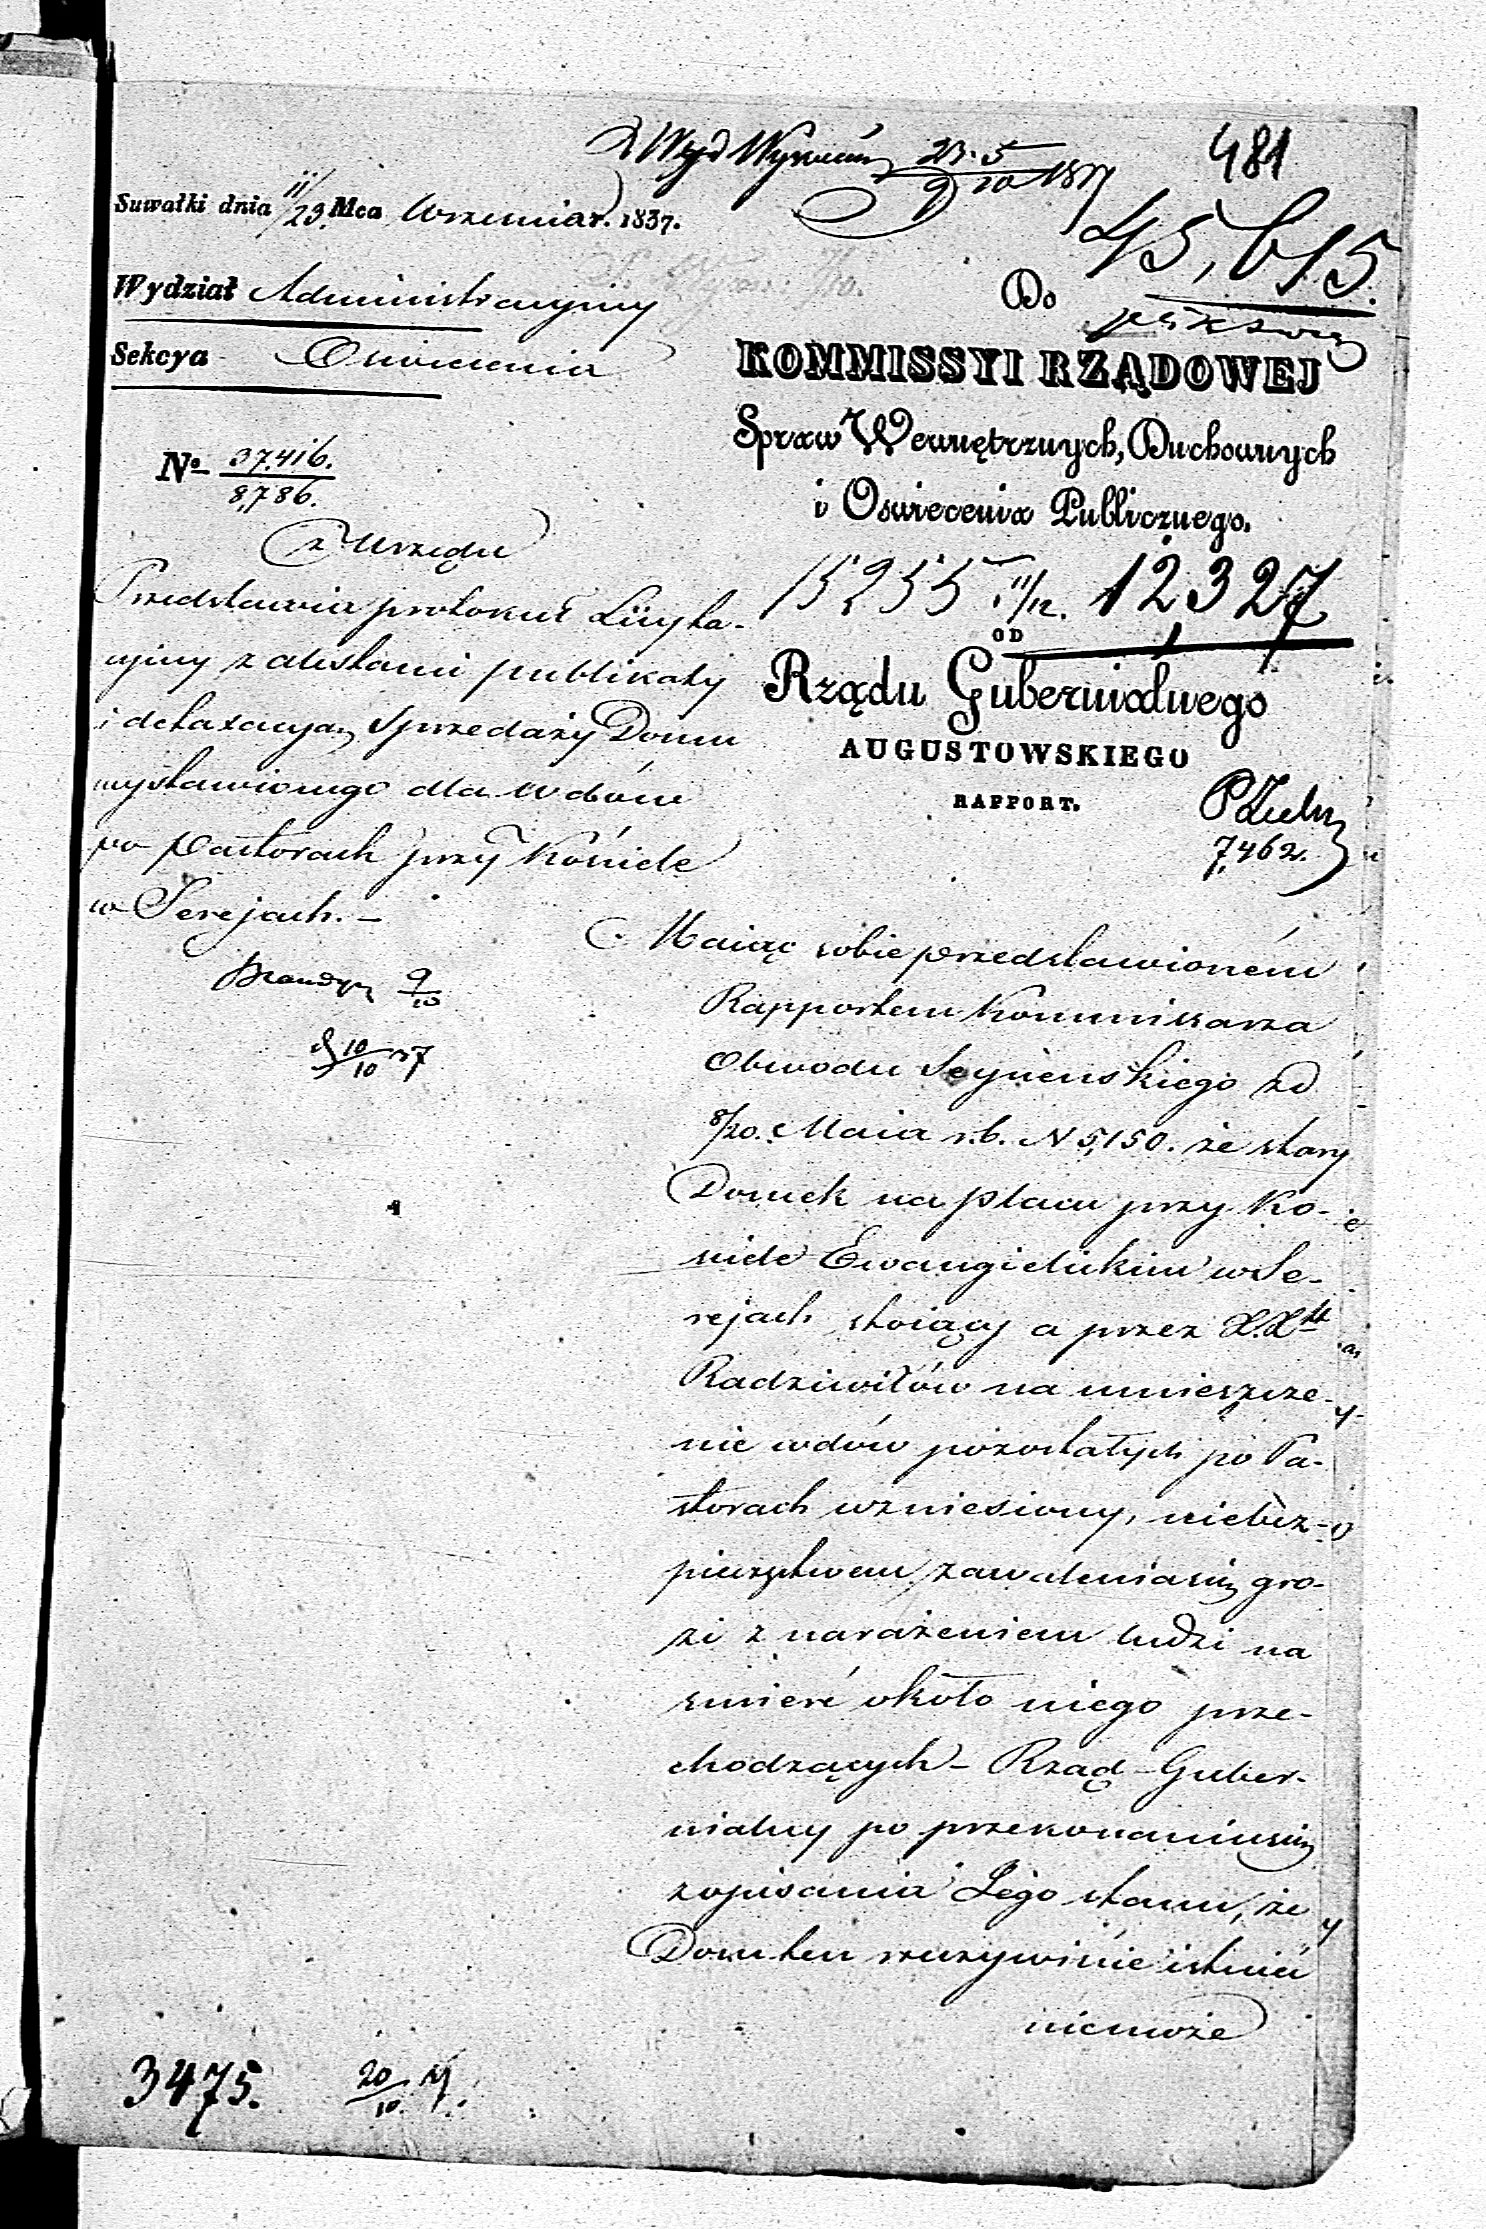 481
Suwałki dnia 11/23 Mca Września r. 1837.
45,615.
Wydział Administracyjny
Do
Sekcya Oświecenia
KOMMISSYI RZĄDOWEJ
Spraw Wewnętrznych, Duchownych
i Oświecenia Publicznego.
No 37.416.
8,786.
z Urzędu
15255 11/12. 12327
OD
Rządu Gubernialnego
AUGUSTOWSKIEGO
RAPPORT.
7,462.
Przedstawia protokuł Licyta-
cyiny z attestami publikaty
i deklaracyą sprzedaży Domu
wystawionego dla wdów
po Pastorach przy Kościele
w Serejach. –
9/10
10/10 37
Maiąc sobie przedstawioném
Rapportem Kommissarza
Obwodu Seyneńskiego z d
8/20. Maia r.b. N 5,150. że stary
Domek na placu przy Ko-
sciele Ewangielickim w Se-
rejach stoiący a przez X.X.
Radziwiłów na umieszcze-
nie wdów pozostałych po Pa-
storach wzniesiony, niebez-
pieczeństwem zawalenia się gro-
zi z narażeniem ludzi na
smierć około niego prze-
chodzących – Rząd Guber-
nialny po przekonaniu się
z opisania Jego stanu, że
Dom ten rzeczywiście istnieć
niemoże
3475.
20/10